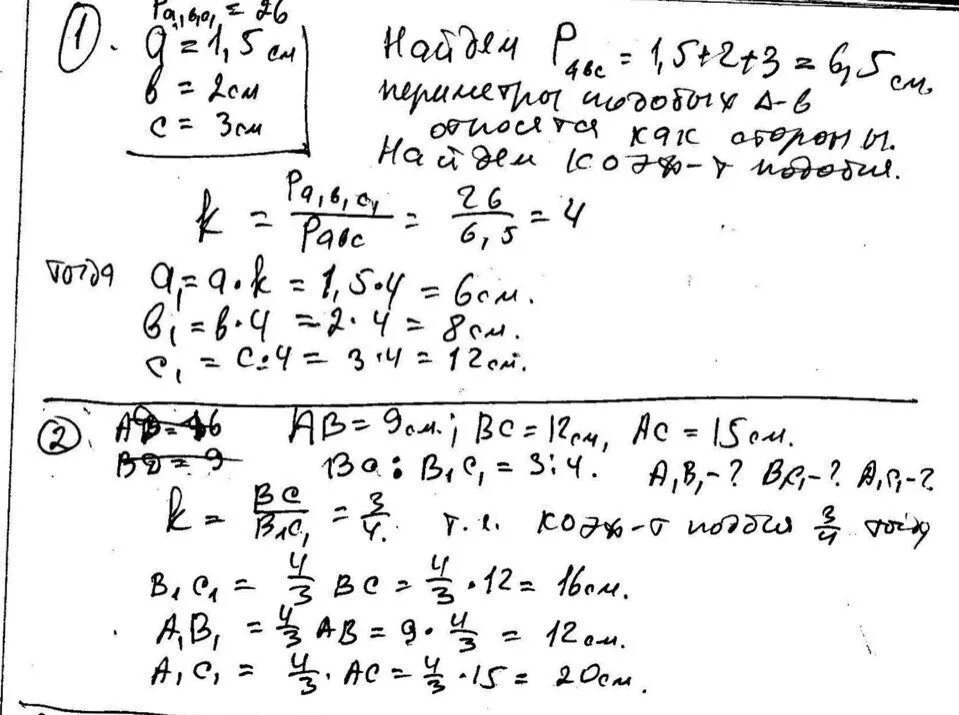 Pa₁b₁c₁ = 26
① a = 1,5 см
в = 2см
с = 3см
Найдем Pавс = 1,5+2+3 = 6,5 см.
периметры подобых Δ-в
относятся как стороны.
Найдем коэф-т подобия.
k = Pа₁в₁с₁/Pавс = 26/6,5 = 4
тогда a₁ = a·k = 1,5·4 = 6см.
в₁ = в·4 = 2·4 = 8см.
с₁ = с·4 = 3·4 = 12см.
② AB = 9см.; BC = 12см, AC = 15см.
BC : B₁C₁ = 3:4. A₁B₁-? BC₁-? A₁C₁-?
k = BC/B₁C₁ = 3/4. т.е. коэф-т подобия 3/4 тогда
B₁C₁ = 4/3 BC = 4/3·12 = 16см.
A₁B₁ = 4/3 AB = 9·4/3 = 12см.
A₁C₁ = 4/3·AC = 4/3·15 = 20см.